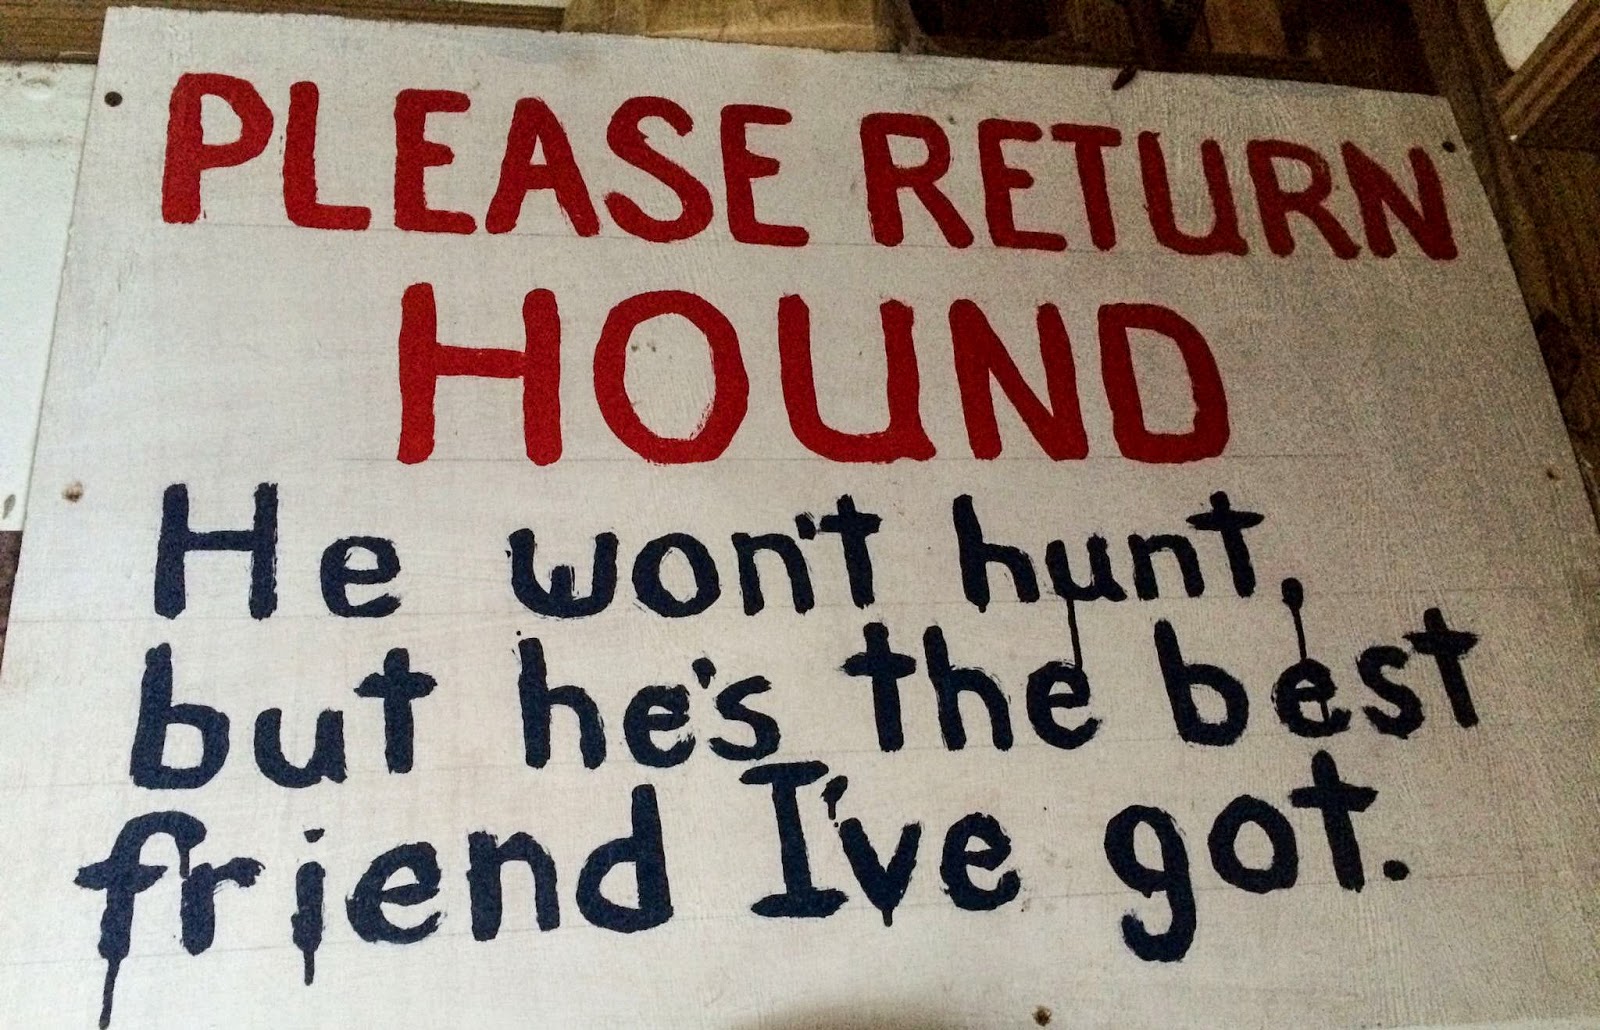 PLEASE RETURN
HOUND
He won't hunt,
but he's the best
friend I've got.